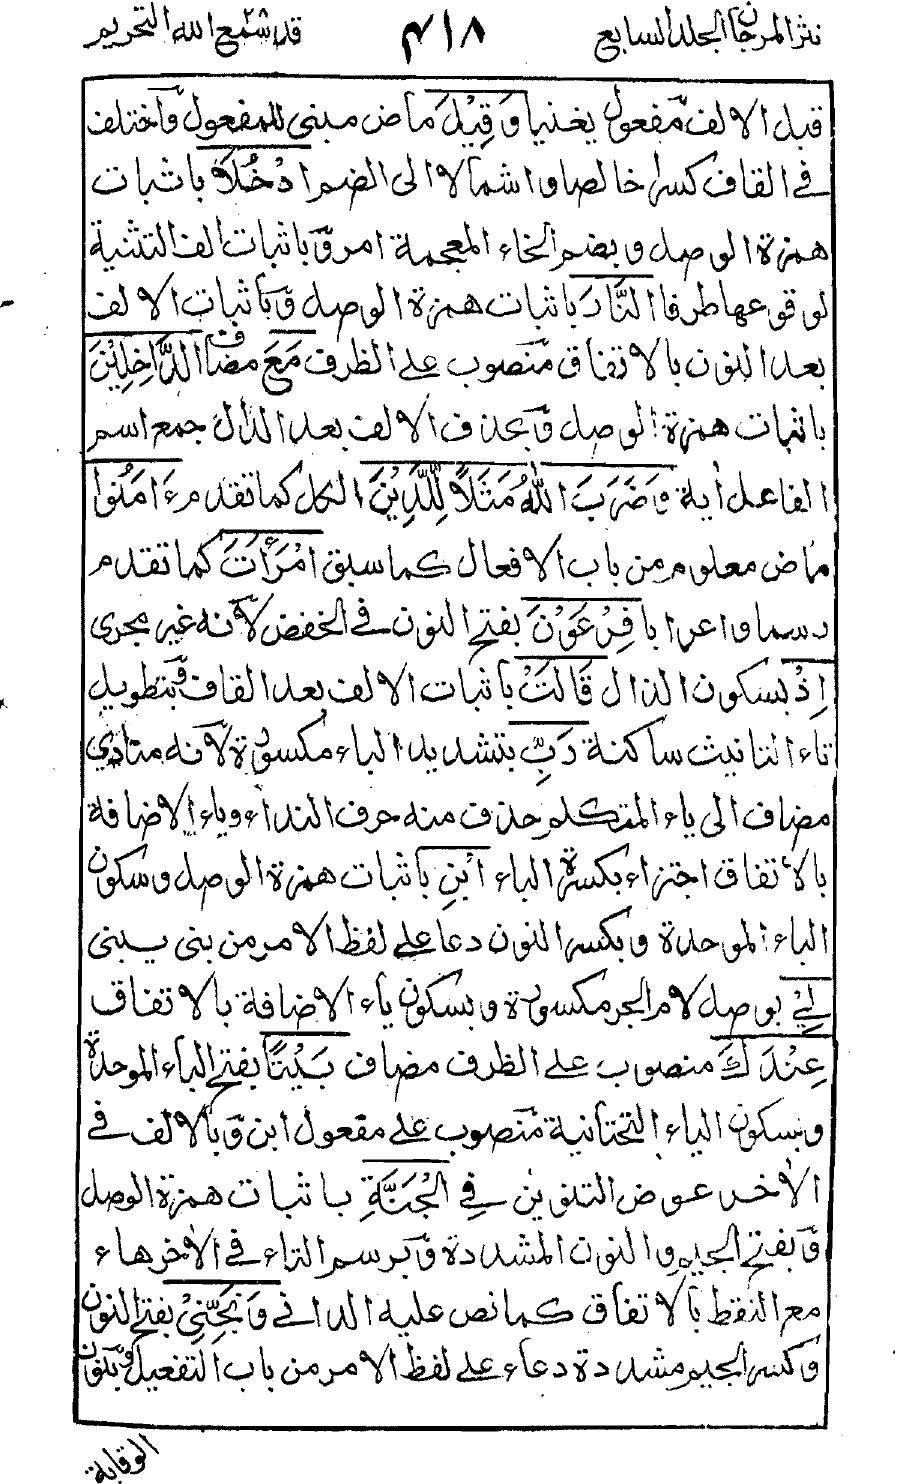 نثر المرجان المجلد السابع ۴۱۸ قد سمع الله ۲۸ التحريم
قبل الالف مفعول يغنيا وَقِيْلَ ماض مبني للمفعول واختلف
في القاف كسرا خالصا واشمالا الى الضم ادْخُلَا باثبات
همزة الوصل وبضم الخاء المعجمة امر وباثبات الف التثنية
لوقوعها طرفا النَّارَ باثبات همزة الوصل وباثبات الالف
بعد النون بالاتفاق منصوب على الظرف مَعَ مضاف الدَّاخِلِيْنَ
باثبات همزة الوصل وبحذف الالف بعد الدال جمع اسم
الفاعل اية وَضَرَبَ اللّٰهُ مَثَلًا لِّلَّذِيْنَ الكل كما تقدم ءَامَنُوا
ماض معلوم من باب الافعال كما سبق امْرَأَتَ كما تقدم
رسما واعرابا فِرْعَوْنَ بفتح النون في الخفض لانه غير مجرى
اِذْ بسكون الذال قَالَتْ باثبات الالف بعد القاف وبتطويل
تاء التانيث ساكنة رَبِّ بتشديد الباء مكسورة لانه منادي
مضاف الى ياء المتكلم حذف منه حرف النداء وياء الاضافة
بالاتفاق اجتزاء بكسرة الباء ابْنِ باثبات همزة الوصل وسكون
الباء الموحدة وبكسر النون دعا على لفظ الامر من بنى يبني
لِيْ بوصل لام الجر مكسورة وبسكون ياء الاضافة بالاتفاق
عِنْدَكَ منصوب على الظرف مضاف بَيْتًا بفتح الباء الموحدة
وبسكون الياء التحتانية منصوب على مفعول ابن وبالالف في
الاخر عوض التنوين فِي الْجَنَّةِ باثبات همزة الوصل
وبفتح الجيم والنون المشددة وبرسم التاء في الاخر هاء
مع النقط بالاتفاق كما نص عليه الداني وَنَجِّنِيْ بفتح النون
وكسر الجيم مشددة دعاء على لفظ الامر من باب التفعيل وبنون
الوقاية